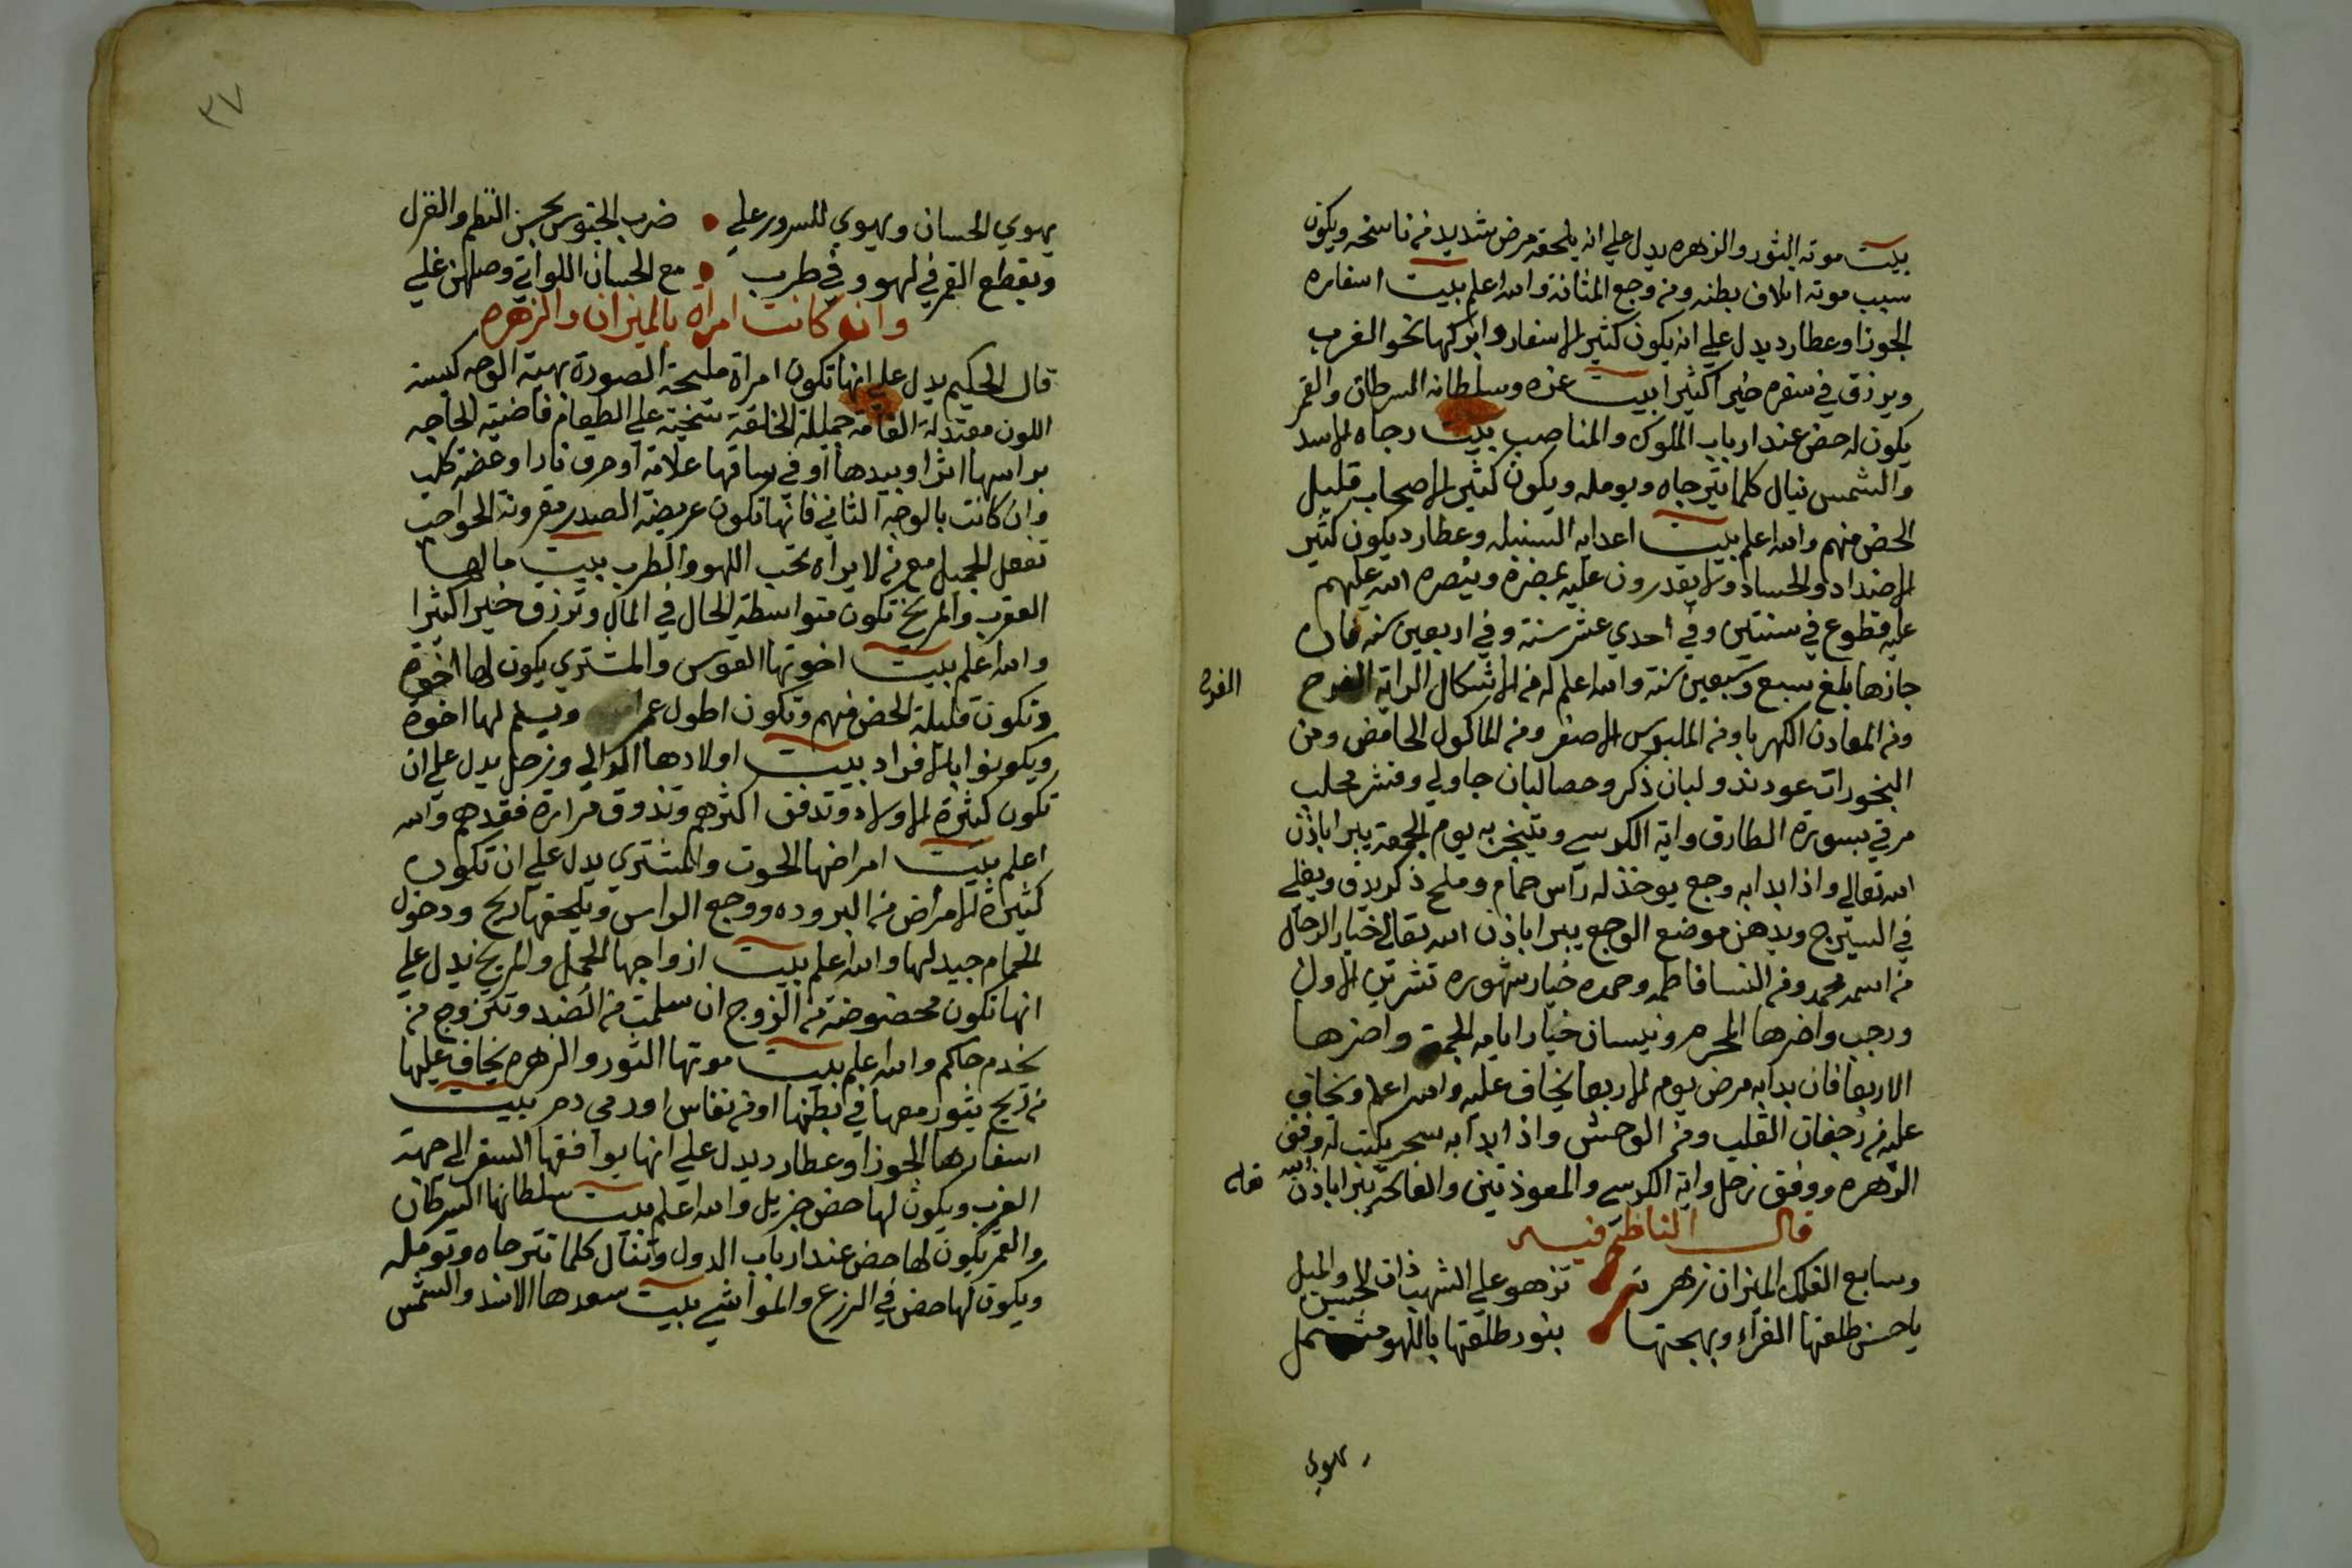 بيت موته الثور والزهره يدل علي انه يلحقه مرض شديد من ناسخه ويكون
سبب موته اتلاف بطنه ومن وجع المثانة والله اعلم بيت اسفاره
الجوزا وعطارد يدل علي انه يكون كثير الاسفار وابركها نحو الغرب
ويرزق في سفره خيرا كثيرا بيت عزه وسلطانه السرطان والقمر
يكون له حض عند ارباب الملوك والمناصب بيت رجاه الاسد
والشمس ينال كلما يترجاه ويومله ويكون كثير الاصحاب قليل
الحض منهم والله اعلم بيت اعدايه السنبله وعطارد يكون كثير
الاضداد والحساد ولا يقدرون عليه بمضرة وينصره الله عليهم
عليه قطوع في سنتين وفي احدي عشر سنة وفي اربعين سنه فان
جازها بلغ سبع وسبعين سنه والله اعلم له من الاشكال الراية الفرح
الفرح
ومن المعادن الكهربا ومن الملبوس الاصفر ومن الماكول الحامض ومن
البخورات عود ند ولبان ذكر وحصالبان جاولي وقشر محلب
مرقي بسورة الطارق واية الكرسي ويتبخر به يوم الجمعة يبرا باذن
الله تعالي واذا بدا به وجع يوخذ له راس حمام وملح ذكر يدق ويغلي
في السيرج ويدهن موضع الوجع يبرا باذن الله تعالي خيار الرجال
من اسمه محمد ومن النسا فاطمه وحمده خيار شهوره تشرين الاول
ورجب واضرها المحرم ونيسان خيار ايامه الجمعة واضرها
الاربعا فان بدا به مرض يوم الاربعا يخاف عليه والله اعلم ويخاف
عليه من رجفان القلب ومن الوحش واذا بدا به سحر يكتب له وفق
الزهره ووفق زحل واية الكرسي والمعوذتين والفاتحة يبرا باذن الله
تعلى
قال الناظم فيه
وسابع الفلك الميزان زهرته تزهو علي الشهب ذات الحسن والميل
يا حسن طلعتها الغراء وبهجتها بنور طلعتها باللهو مشتمل
يهوي
٣٧
يهوي الحسان ويهوي للسرور علي ضرب الجنوس بحسن النظم والغزل
ويقطع القمر في لهو وفي طرب مع الحسان اللواتي وصلهن غلي
وان كانت امراة بالميزان والزهره
قال الحكيم يدل علي انها تكون امراة مليحة الصورة بهية الوجه كيسة
اللون معتدلة القامة جميلة الخلقة سخية علي الطعام قاضية الحاجه
براسها اثرا وبيدها او في ساقها علامة او حرق نارا وعضة كلب
وان كانت بالوجه الثاني فانها تكون عريضة الصدر مقرونة الحواجب
تفعل الجميل مع من لا يراه تحب اللهو والطرب بيت مالها
العقرب والمريخ تكون متواسطة الحال في المال وترزق خيرا كثيرا
والله اعلم بيت اخوتها القوس والمشتري يكون لها اخوة
وتكون قليلة الحض منهم وتكون اطول عمرا ويسلم لها اخوة
ويكونوا بالافراد بيت اولادها الدالي وزحل يدل علي ان
تكون كثيرة الاولاد وتدفن اكثرهم وتذوق مرارة فقدهم والله
اعلم بيت امراضها الحوت والمشتري يدل علي ان تكون
كثيرة الامراض من البروده ووجع الراس ويلحقها ريح ودخول
الحمام جيد لها والله اعلم بيت ازواجها الحمل والمريخ يدل علي
انها تكون محضوضة من الزوج ان سلمت من الضد وتتزوج من
يخدم حاكم والله اعلم بيت موتها الثور والزهره يخاف عليها
من ريح يثور معها في بطنها او من نفاس او رمي دم بيت
اسفارها الجوزا وعطارد يدل علي انها يوافقها السفر الي جهة
الغرب ويكون لها حض جزيل والله اعلم بيت سلطانها السرطان
والقمر يكون لها حض عند ارباب الدول وتنال كلما تترجاه وتومله
ويكون لها حض في الزرع والمواشي بيت سعدها الاسد والشمس